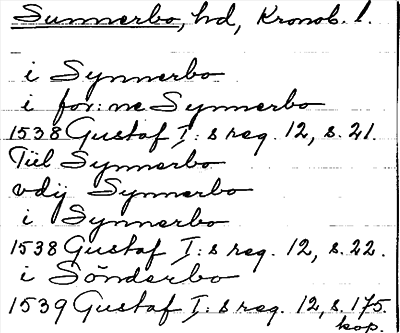 Sunnerbo, hd, Kronob. l.
i Synnerbo
i for:ne Synnerbo
1538 Gustaf I:s reg. 12, s. 21.
Tiil Synnerbo
vdij Synnerbo
i Synnerbo
1538 Gustaf I:s reg. 12, s. 22.
i Sönderbo
1539 Gustaf I:s reg. 12, s. 175.
kop.